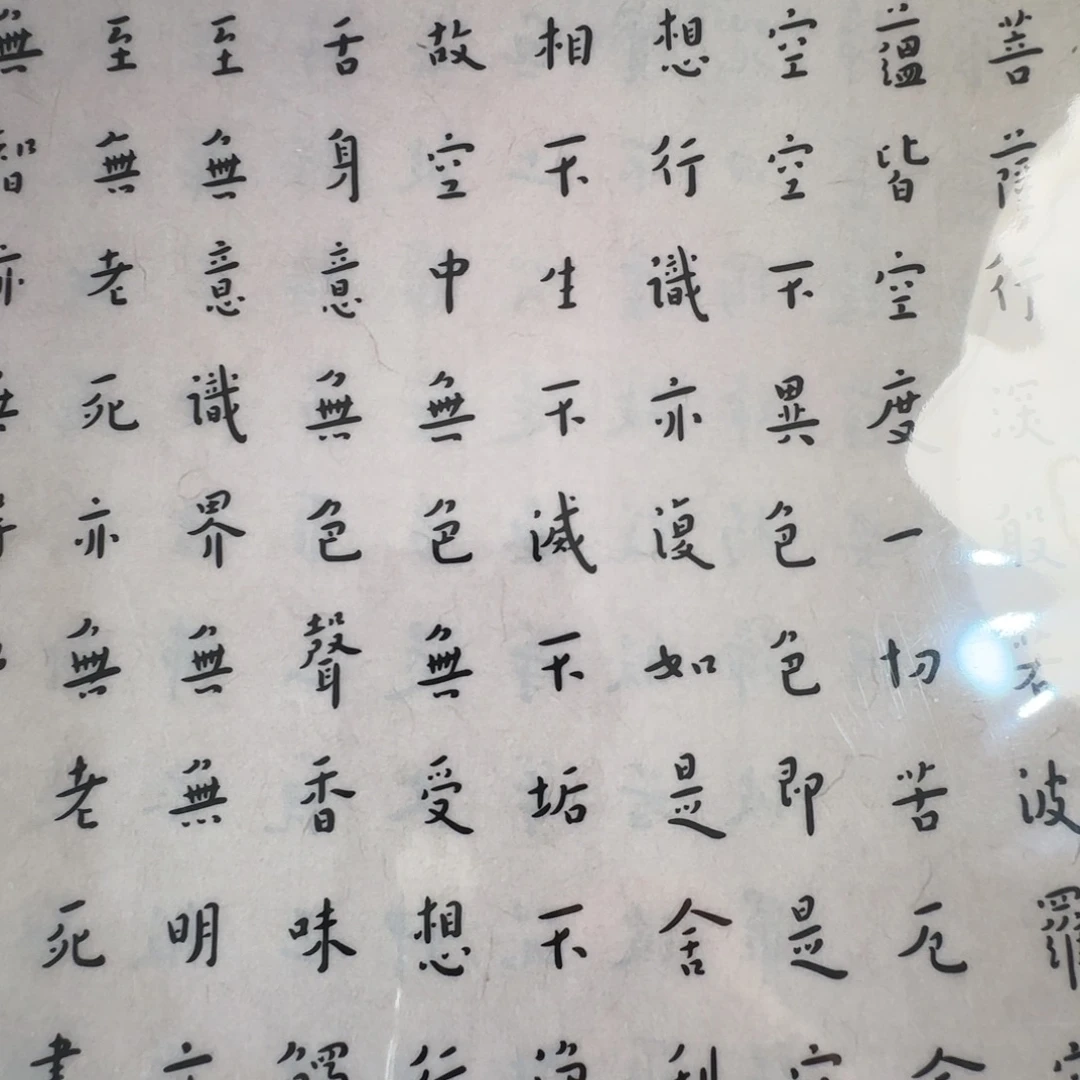 菩薩行深般若波羅
蘊皆空度一切苦厄舍
空空不異色色即是空
想行識亦復如是舍利
相不生不滅不垢不淨
故空中無色無受想行
舌身意無色聲香味觸
至無意識界無無明亦
至無老死亦無老死盡
無智亦無得